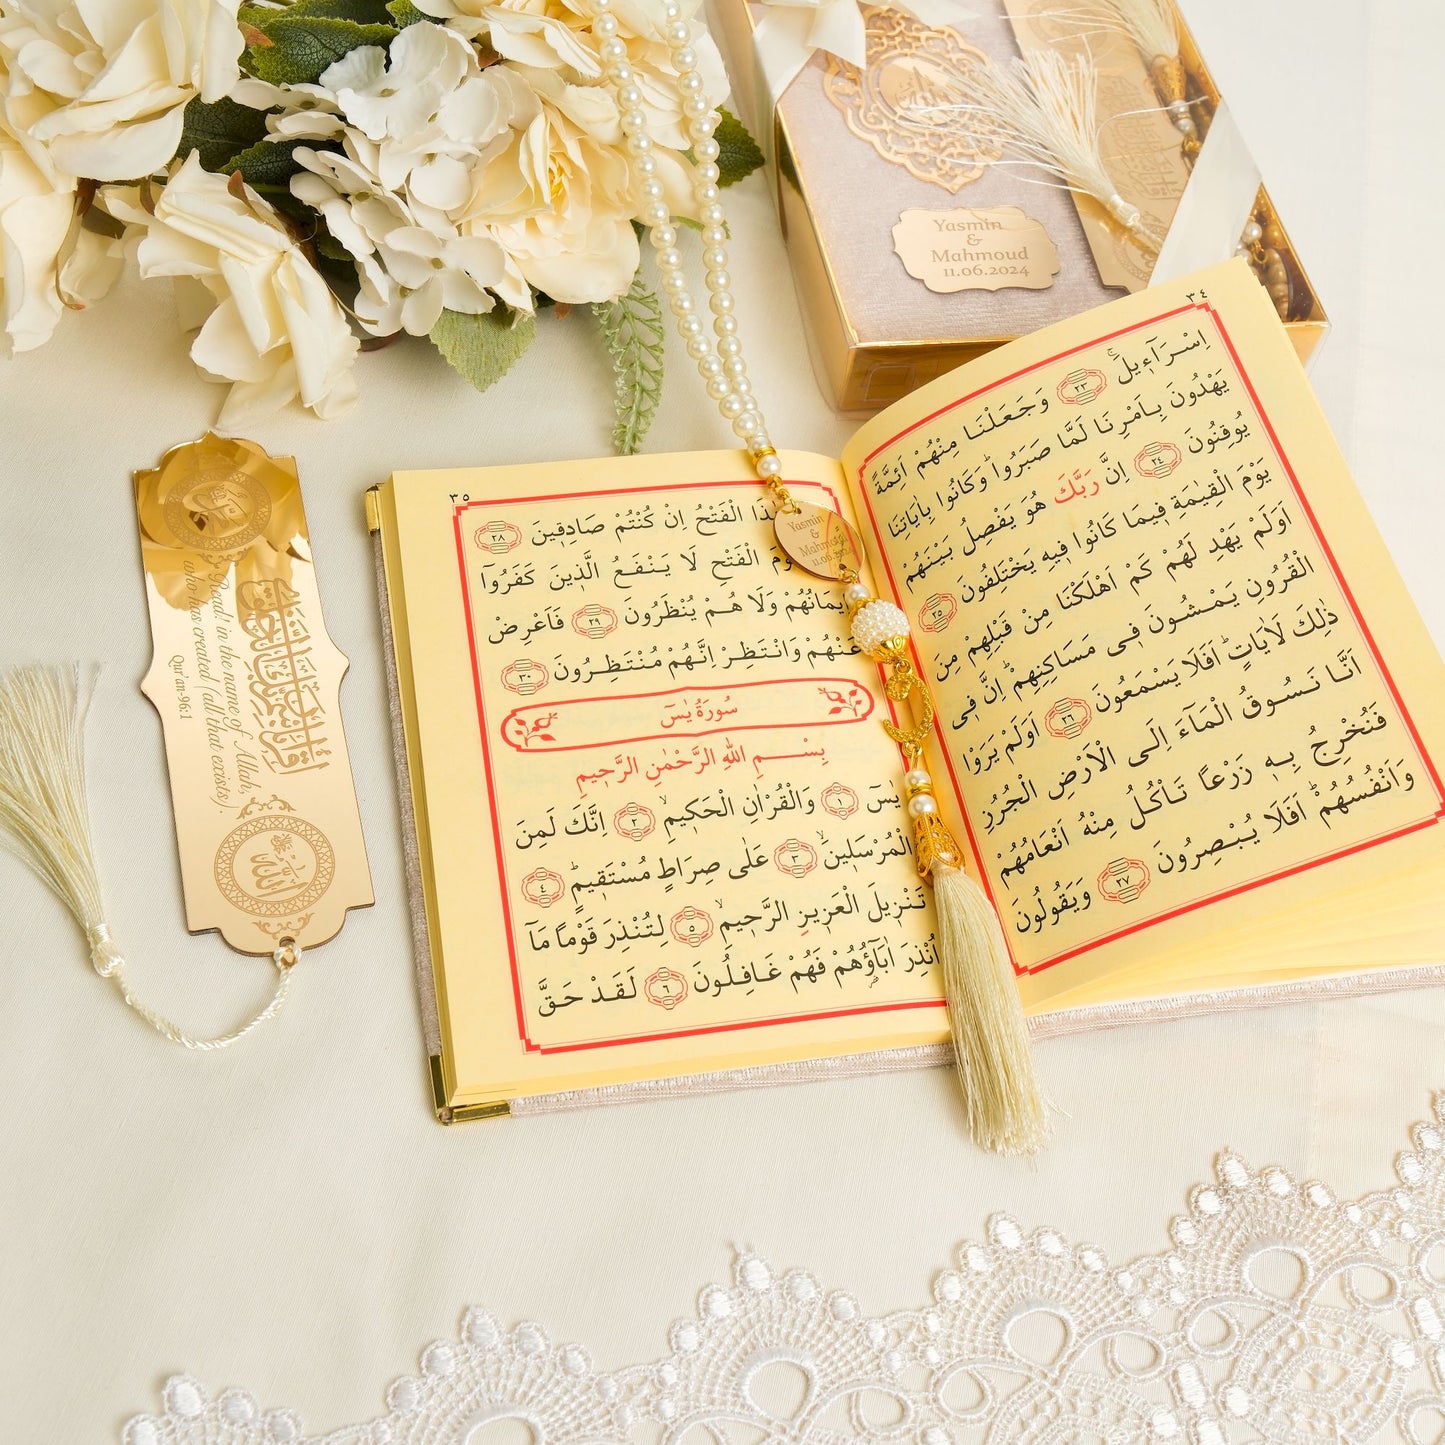 Yasmin
&
Mahmoud
11.06.2024
٣٤
اِسْرَٓاء۪يلَۚ ٢٣ وَجَعَلْنَا مِنْهُمْ اَئِمَّةً
يَهْدُونَ بِاَمْرِنَا لَمَّا صَبَرُواۜ وَكَانُوا بِاٰيَاتِنَا
يُوقِنُونَ ٢٤ اِنَّ رَبَّكَ هُوَ يَفْصِلُ بَيْنَهُمْ
يَوْمَ الْقِيٰمَةِ ف۪يمَا كَانُوا ف۪يهِ يَخْتَلِفُونَ ٢٥
اَوَلَمْ يَهْدِ لَهُمْ كَمْ اَهْلَكْنَا مِنْ قَبْلِهِمْ مِنَ
الْقُرُونِ يَمْشُونَ ف۪ي مَسَاكِنِهِمْۜ اِنَّ ف۪ي
ذٰلِكَ لَاٰيَاتٍۜ اَفَلَا يَسْمَعُونَ ٢٦ اَوَلَمْ يَرَوْا
اَنَّا نَسُوقُ الْمَٓاءَ اِلَى الْاَرْضِ الْجُرُزِ
فَنُخْرِجُ بِه۪ زَرْعًا تَأْكُلُ مِنْهُ اَنْعَامُهُمْ
وَاَنْفُسُهُمْۜ اَفَلَا يُبْصِرُونَ ٢٧ وَيَقُولُونَ
٣٥
الْفَتْحُ اِنْ كُنْتُمْ صَادِق۪ينَ ٢٨
الْفَتْحِ لَا يَنْفَعُ الَّذ۪ينَ كَفَرُٓوا
ا۪يمَانُهُمْ وَلَا هُمْ يُنْظَرُونَ ٢٩ فَاَعْرِضْ
عَنْهُمْ وَانْتَظِرْ اِنَّهُمْ مُنْتَظِرُونَ ٣٠
سُورَةُ يٰسٓ
بِسْمِ اللّٰهِ الرَّحْمٰنِ الرَّح۪يمِ
يٰسٓ ١ وَالْقُرْاٰنِ الْحَك۪يمِۙ ٢ اِنَّكَ لَمِنَ
الْمُرْسَل۪ينَۙ ٣ عَلٰى صِرَاطٍ مُسْتَق۪يمٍۜ ٤
تَنْز۪يلَ الْعَز۪يزِ الرَّح۪يمِۙ ٥ لِتُنْذِرَ قَوْمًا مَٓا
اُنْذِرَ اٰبَٓاؤُ۬هُمْ فَهُمْ غَافِلُونَ ٦ لَقَدْ حَقَّ
Yasmin
&
Mahmoud
11.06.2024
اقرأ باسم ربك الذي خلق
Read! in the name of Allah,
who has created (all that exists).
Qur'an-96:1